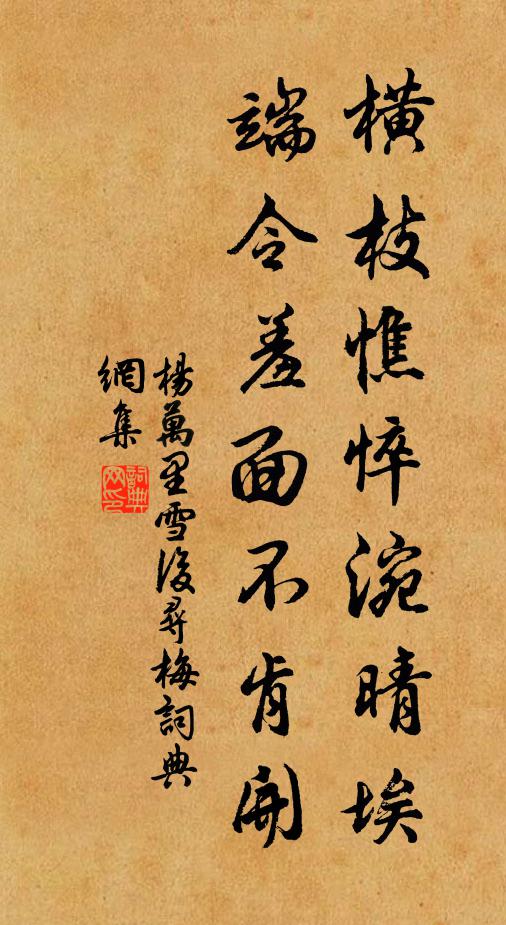 橫枝憔悴涴晴埃
端令羞面不肯開
楊萬里雪後尋梅詞典
網集
詞典
網印